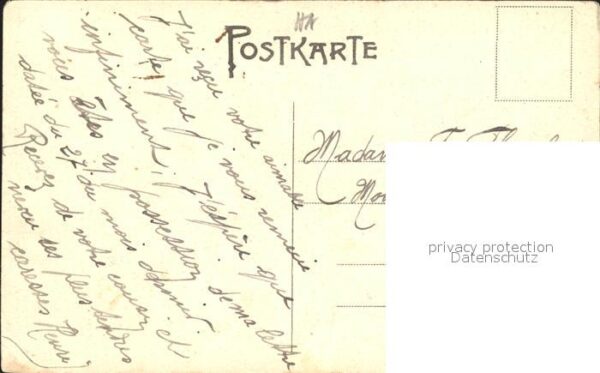 HA
POSTKARTE
J'ai reçu votre aimable
carte, que je vous remercie
infiniment, j'espère que
vous êtes en possession de ma lettre
datée du 27 du mois dernier et
Recevez de votre
neveu ses plus tendres
caresses Henri
Madam
privacy protection
Datenschutz